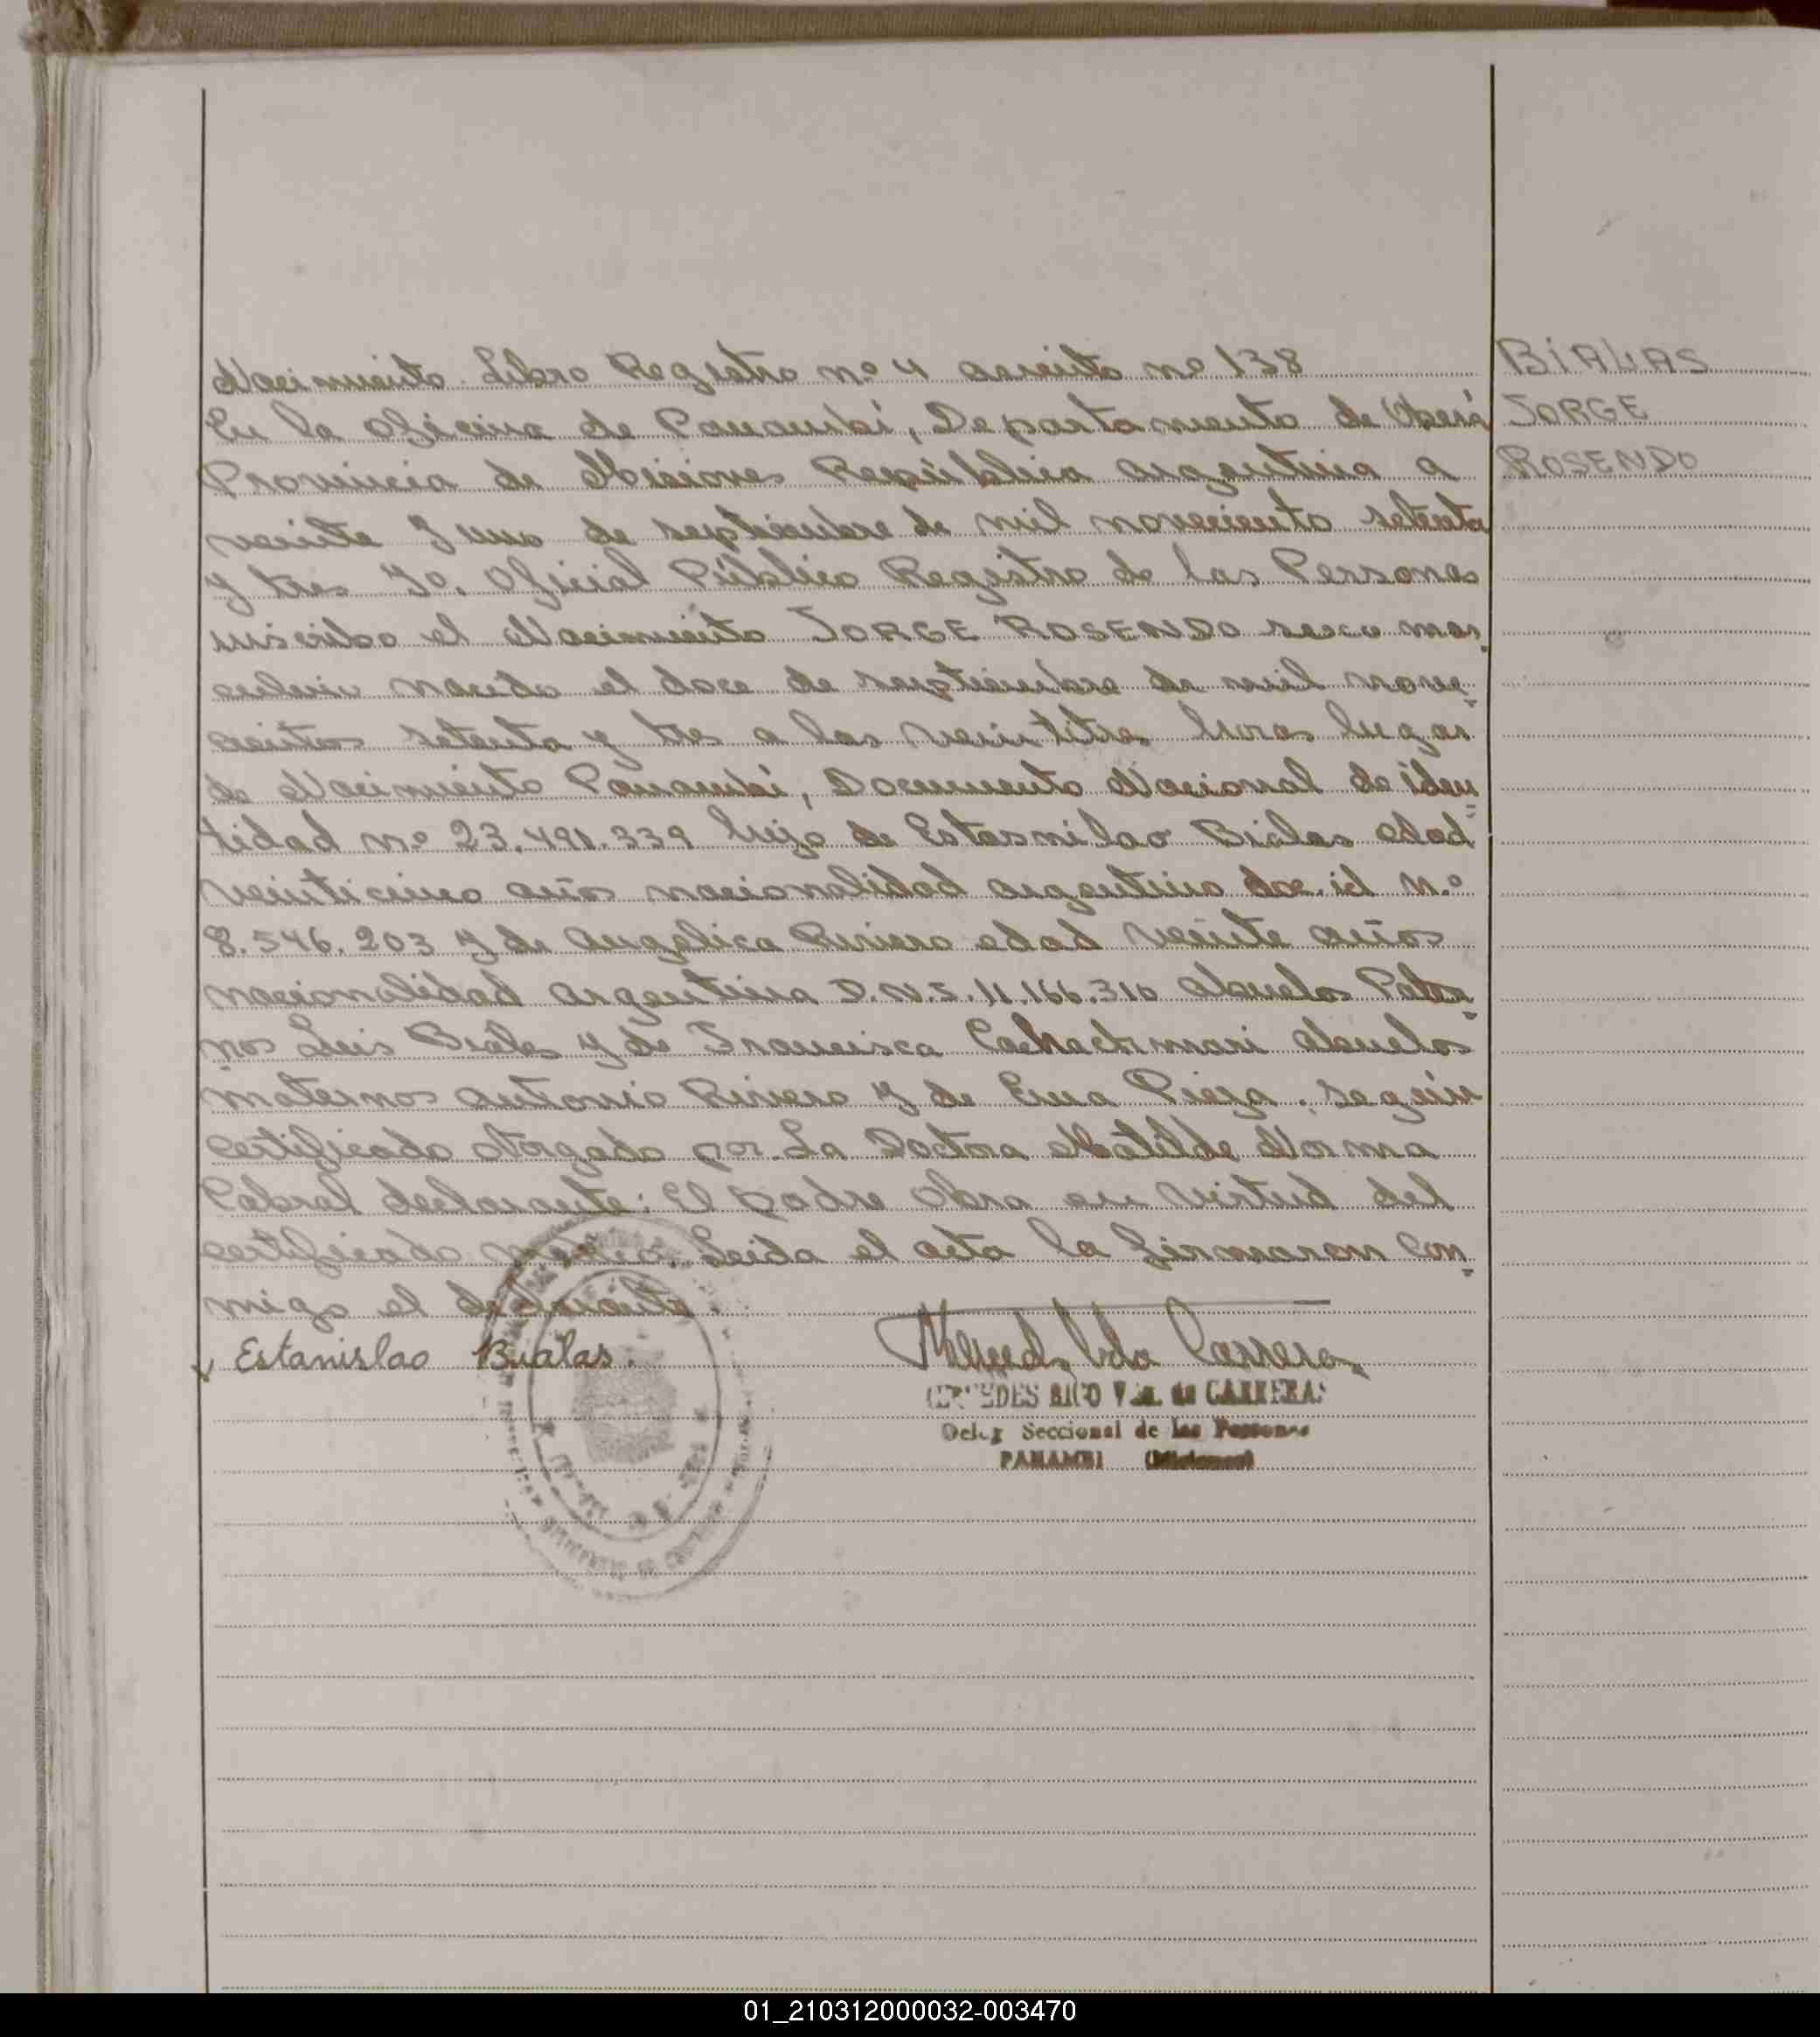 Nacimiento Libro Registro nº 4 asiento nº 138
En la Oficina de Panambí, Departamento de Oberá
Provincia de Misiones República Argentina a
veinte y uno de septiembre de mil noveciento setenta
y tres Yo, Oficial Público Registro de las Personas
inscribo el Nacimiento JORGE ROSENDO sexo mas
culino nacido el doce de septiembre de mil nove-
cientos setenta y tres a las veintitres horas lugar
de Nacimiento Panambí, Documento Nacional de iden
tidad nº 23.491.339 hijo de Estasnilao Bialas edad
veinticinco años nacionalidad argentino doc. id N.º
8.546.203 y de Angélica Riviero edad veinte años
nacionalidad Argentina D.N.I. 11.166.310 Abuelos Pater-
nos Luis Bialas y de Francisca Abuelos
maternos Antonio Riviero y de Ema según
certificado otorgado por La Doctora Matilde Norma
Cabral declarante: El padre obra en virtud del
certificado médico. Leida el acta la firmaron con-
migo el declarante.
Estanislao Bialas.
MERCEDES RICO Vda. de CARRERAS
Deleg Seccional de las Personas
PANAMBI (Misiones)
BIALAS
JORGE
ROSENDO
01_210312000032-003470